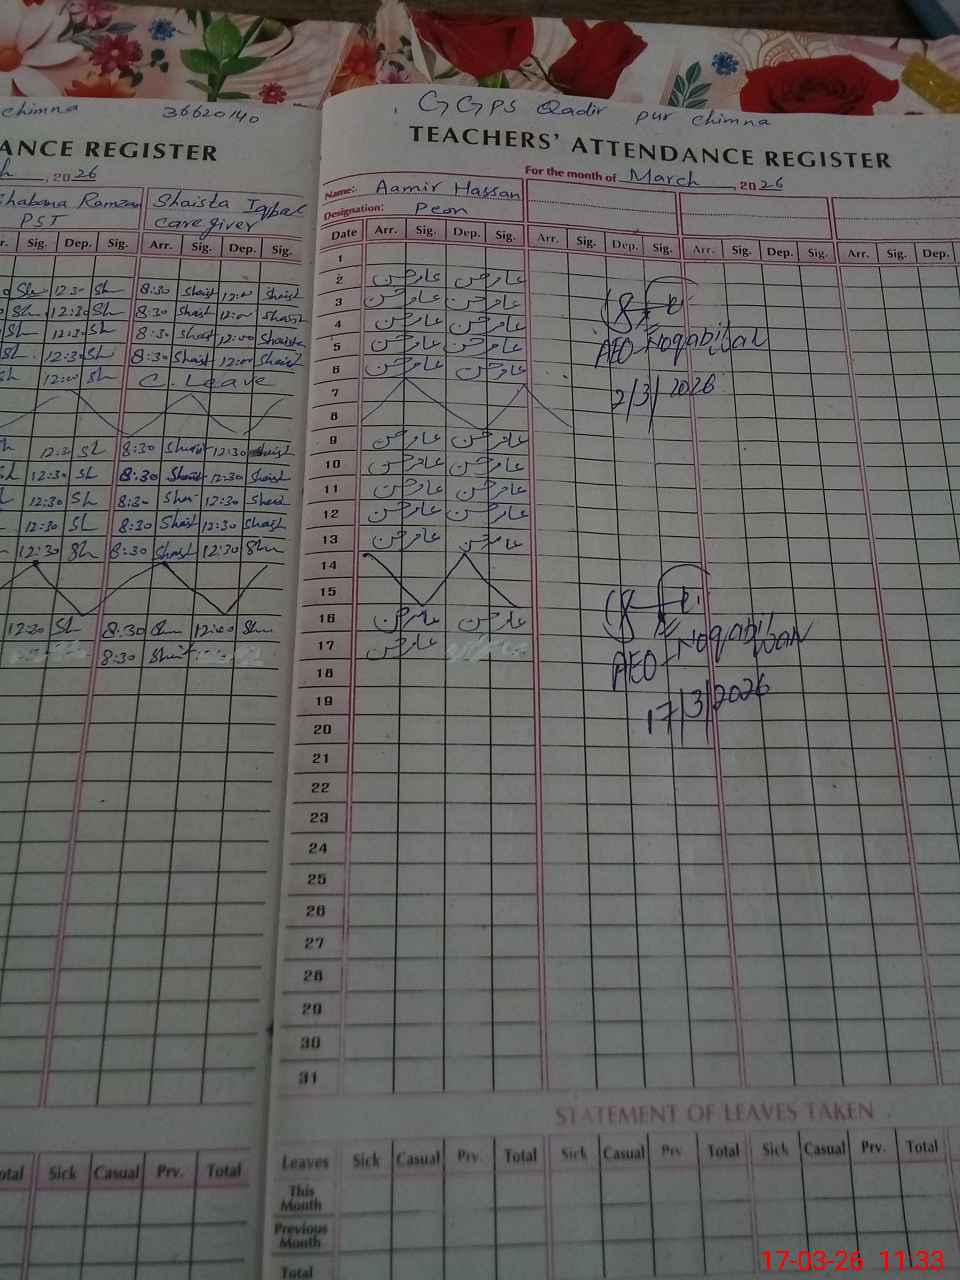 chimna 36620140
ANCE REGISTER
, 2026
Shabana Ramzan Shaista Iqbal
PST caregiver
Sig. Dep. Sig. Arr. Sig. Dep. Sig.
12:30 Sh 8:30 Shaist 12:00 Shaist
Sh 12:30 Sh 8:30 Shaist 12:00 Shaist
Sh 12:30 Sh 8:30 Shaist 12:00 Shaista
Sh 12:30 Sh 8:30 Shaist 12:00 Shaist
Sh 12:00 Sh C. Leave
12:30 Sh 8:30 Shaist 12:30 Shaist
12:30 Sh 8:30 Shaist 12:30 Shaist
12:30 Sh 8:30 Shai 12:30 Shaist
12:30 Sh 8:30 Shaist 12:30 Shaist
12:30 Sh 8:30 Shaist 12:30 Sha
12:30 Sh 8:30 12:00
8:30 Shaist
Total Sick Casual Prv. Total
GGPS Qadir pur chimna
TEACHERS' ATTENDANCE REGISTER
For the month of March, 2026
Name:- Aamir Hassan
Designation: Peon
Date Arr. Sig. Dep. Sig. Arr. Sig. Dep. Sig. Arr. Sig. Dep. Sig. Arr. Sig. Dep.
1
2 عامر حسن عامر حسن
3 عامر حسن عامر حسن
4 عامر حسن عامر حسن
5 عامر حسن عامر حسن
6 عامر حسن عامر حسن
7
8
9 عامر حسن عامر حسن
10 عامر حسن عامر حسن
11 عامر حسن عامر حسن
12 عامر حسن عامر حسن
13 عامر حسن عامر حسن
14
15
16 عامر حسن عامر حسن
17 عامر حسن
18
19
20
21
22
23
24
25
26
27
28
29
30
31
AEO-Noqabilwah
2/3/2026
AEO-Noqabilwah
17/3/2026
STATEMENT OF LEAVES TAKEN
Leaves Sick Casual Prv. Total Sick Casual Prv. Total Sick Casual Prv. Total
This Month
Previous Month
Total
17-03-26 11:33